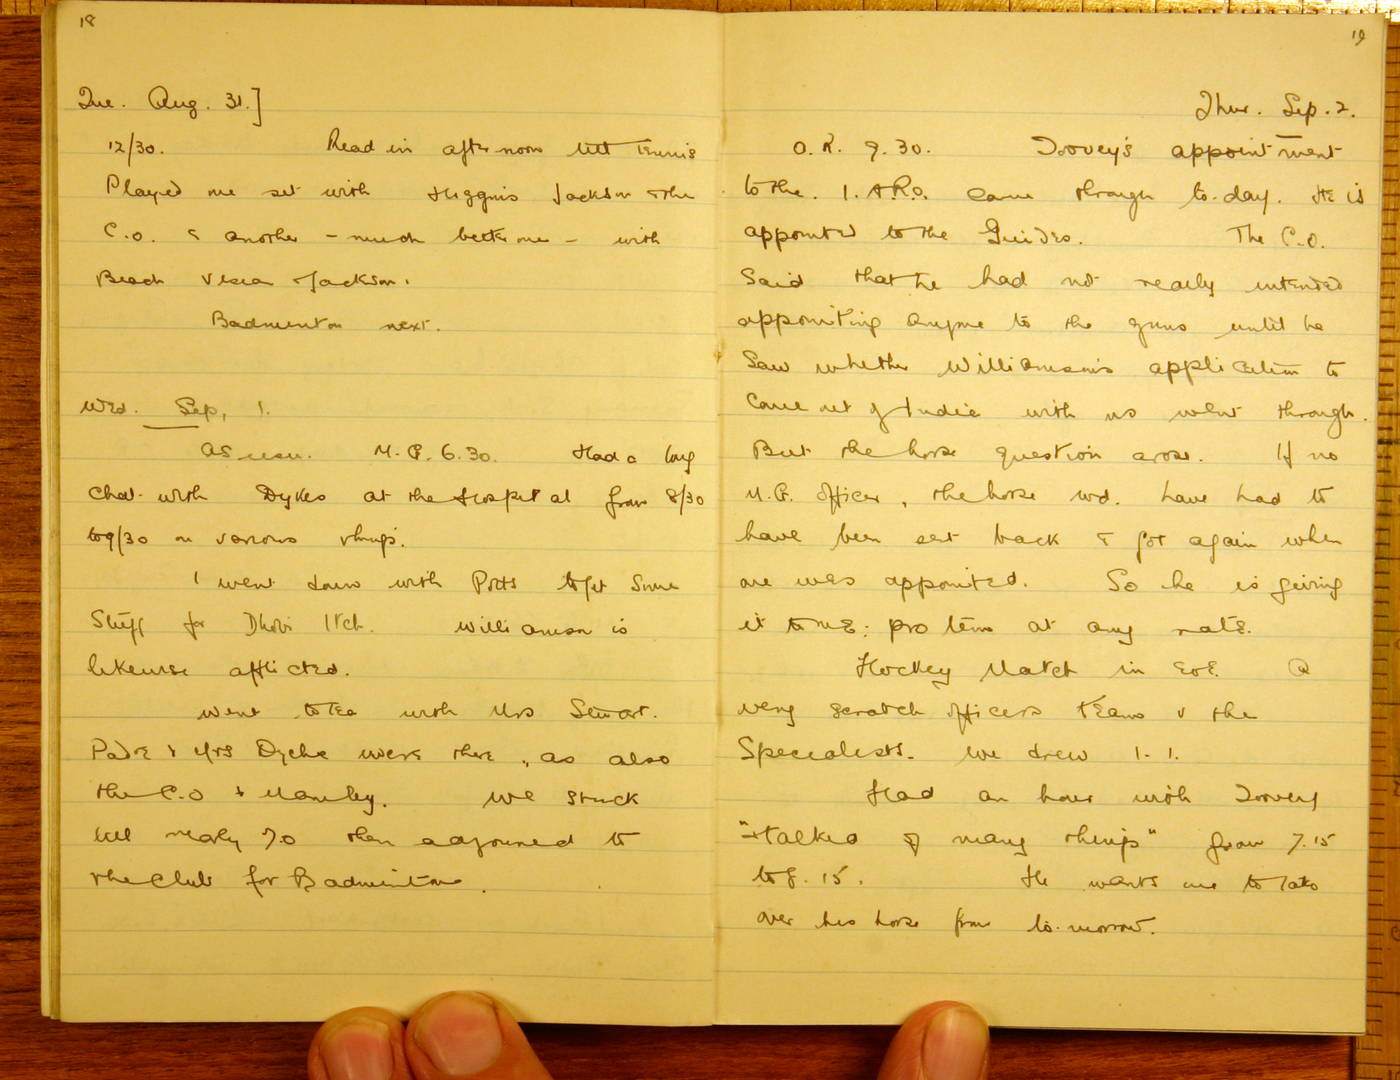 18
Tue. Aug. 31.]
12/30. Read in afternoon till tennis
Played one set with Higgins Jackson & the
C.O. & another - much better one - with
Beach versus Jackson.
Badminton next.
Wed. Sep. 1.
As usual. M.G. 6.30. Had a long
chat with Dykes at the Hospital from 8/30
to 9/30 on various things.
I went down with Potts to get some
Stuff for Dhobi Itch. Williamson is
likewise afflicted.
Went to tea with Mrs Stewart.
Padre & Mrs Dyche were there, as also
the C.O & Hanley. We stuck
till nearly 7.0 then adjourned to
the Club for Badminton.
19
Thur. Sep. 2.
O.R. 9.30. Tovey's appointment
to the I.A.R.O. came through to-day. He is
appointed to the Guides. The C.O.
Said that he had not really intended
appointing anyone to the guns until he
Saw whether Williamson's application to
Come out of India with us went through.
But the horse question arose. If no
M.G. officer, the horse wd. have had to
have been sent back & got again when
one was appointed. So he is giving
it to ME: pro tem at any rate.
Hockey Match in Eve. A
very scratch officers team v the
Specialists. We drew 1-1.
Had an hour with Tovey
"& talked of many things" from 7.15
to 8.15. He wants me to take
over his horse from to-morrow.